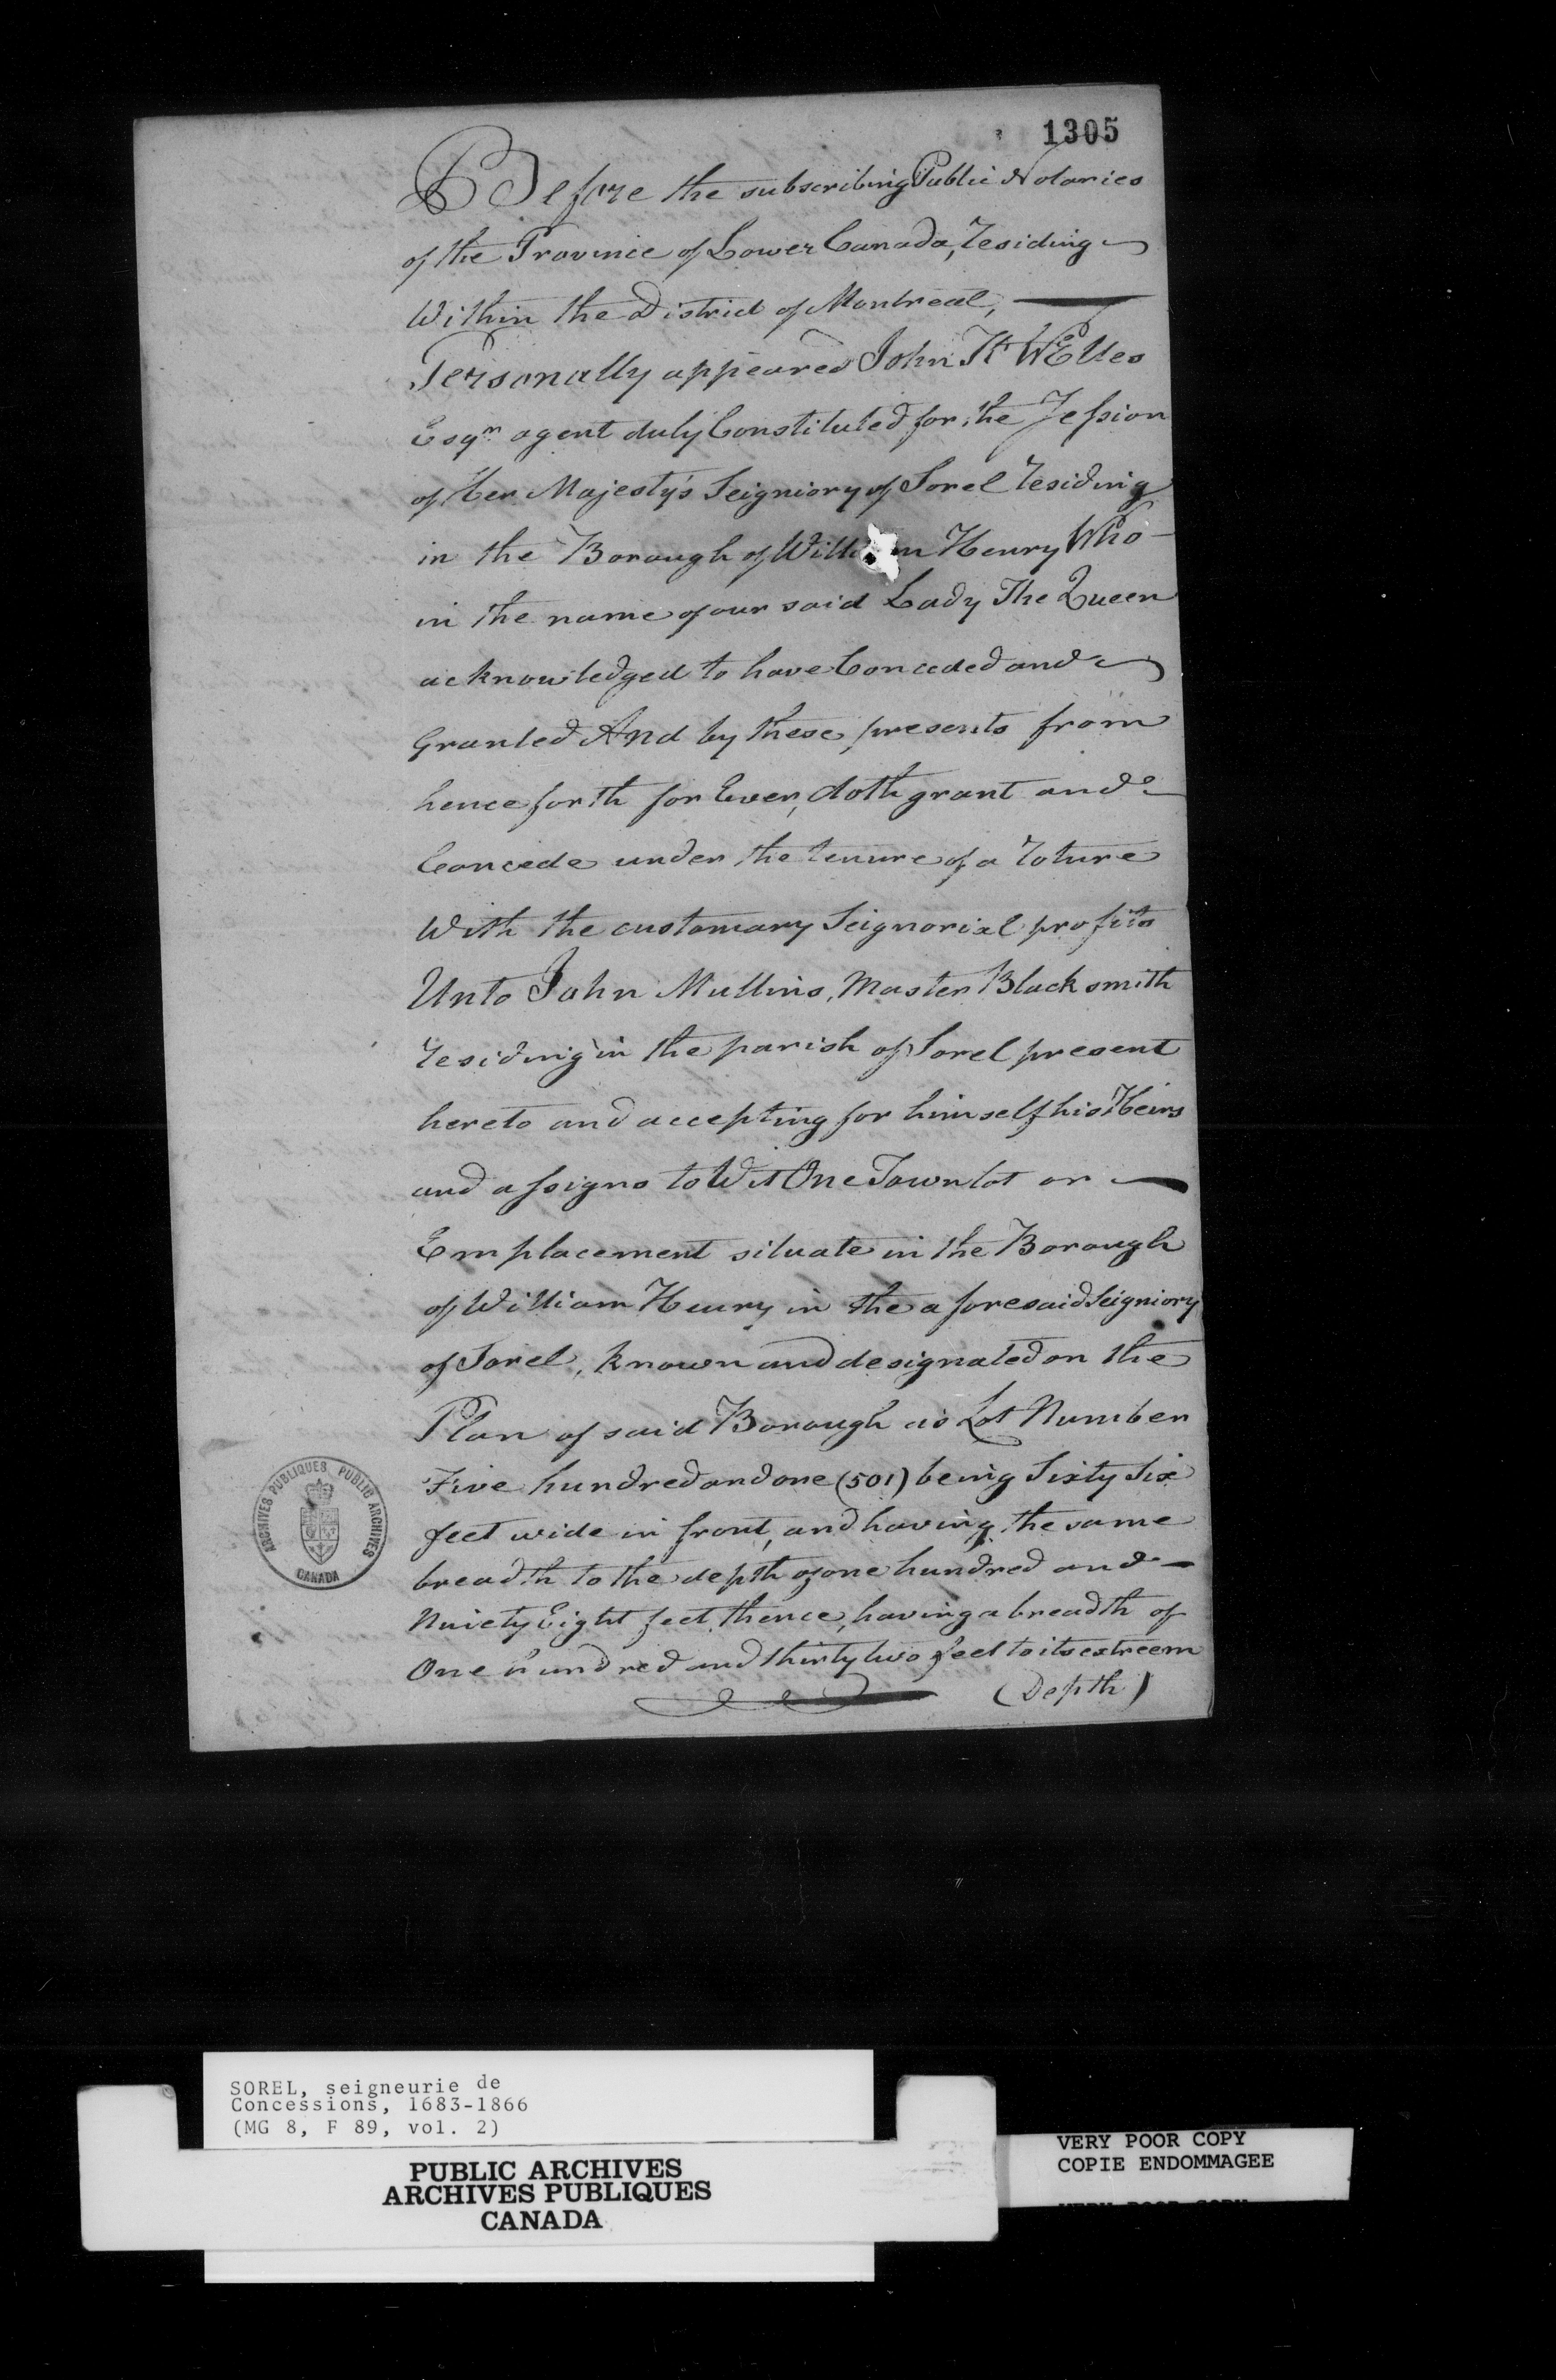 1305
Before the subscribing Public Notaries
of the Province of Lower Canada, residing
Within the District of Montreal,
Personally appeared John Kr WElles
Esqr. agent duly Constituted for the
of Her Majesty's Seigniory of Sorel residing
in the Borough of William Henry Who
in the name of our said Lady The Queen
acknowledged to have Conceded and
Granted And by these presents from
hence forth for Ever, doth grant and
Concede under the tenure of a roture
With the customary Seignorial profits
Unto John Mullins, Master Black smith
residing in the parish of Sorel present
hereto and accepting for himself his Heirs
and assigns to Wit One Town lot or
Emplacement situate in the Borough
of William Henry in the aforesaid Seigniory
of Sorel, known and designated on the
Plan of said Borough as Lot Number
Five hundred and one (501) being Sixty Six
feet wide in front, and having the same
breadth to the depth of one hundred and
Ninety Eight feet, thence, having a breadth of
One hundred and thirty two feet to its extreem
(Depth)
ARCHIVES PUBLIQUES PUBLIC ARCHIVES
CANADA
SOREL, seigneurie de
Concessions, 1683-1866
(MG 8, F 89, vol. 2)
PUBLIC ARCHIVES
ARCHIVES PUBLIQUES
CANADA
VERY POOR COPY
COPIE ENDOMMAGEE
VERY POOR COPY